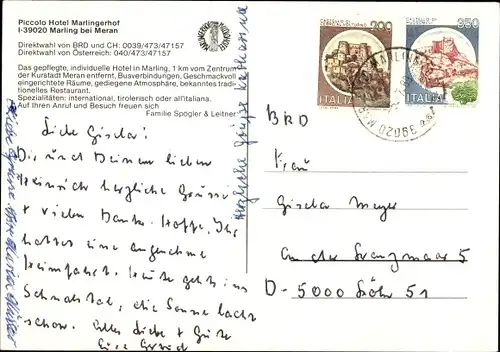 Piccolo Hotel Marlingerhof
I-39020 Marling bei Meran
Direktwahl von BRD und CH: 0039/473/47157
Direktwahl von Österreich: 040/473/47157
Das gepflegte, individuelle Hotel in Marling, 1 km vom Zentrum
der Kurstadt Meran entfernt, Busverbindungen, Geschmackvoll
eingerichtete Räume, gediegene Atmosphäre, bekanntes tradi-
tionelles Restaurant.
Spezialitäten: international, tirolerisch oder all'italiana.
Auf Ihren Anruf und Besuch freuen sich
Familie Spögler & Leitner
Liebe Gisela!
Dir und Deinem lieben
Heinrich herzliche Grüsse
+ vielen Dank. Hoffe, Ihr
hattet eine angenehme
Heimfahrt. Heute geht's ins
Schnalstal, die Sonne lacht
schon. Alles Liebe + Gute
Herzliche Grüsse
200
ITALIA
350
ITALIA
39020
BRD
Frau
Gisela Meyer
An der 5
D-5000 Köln 51